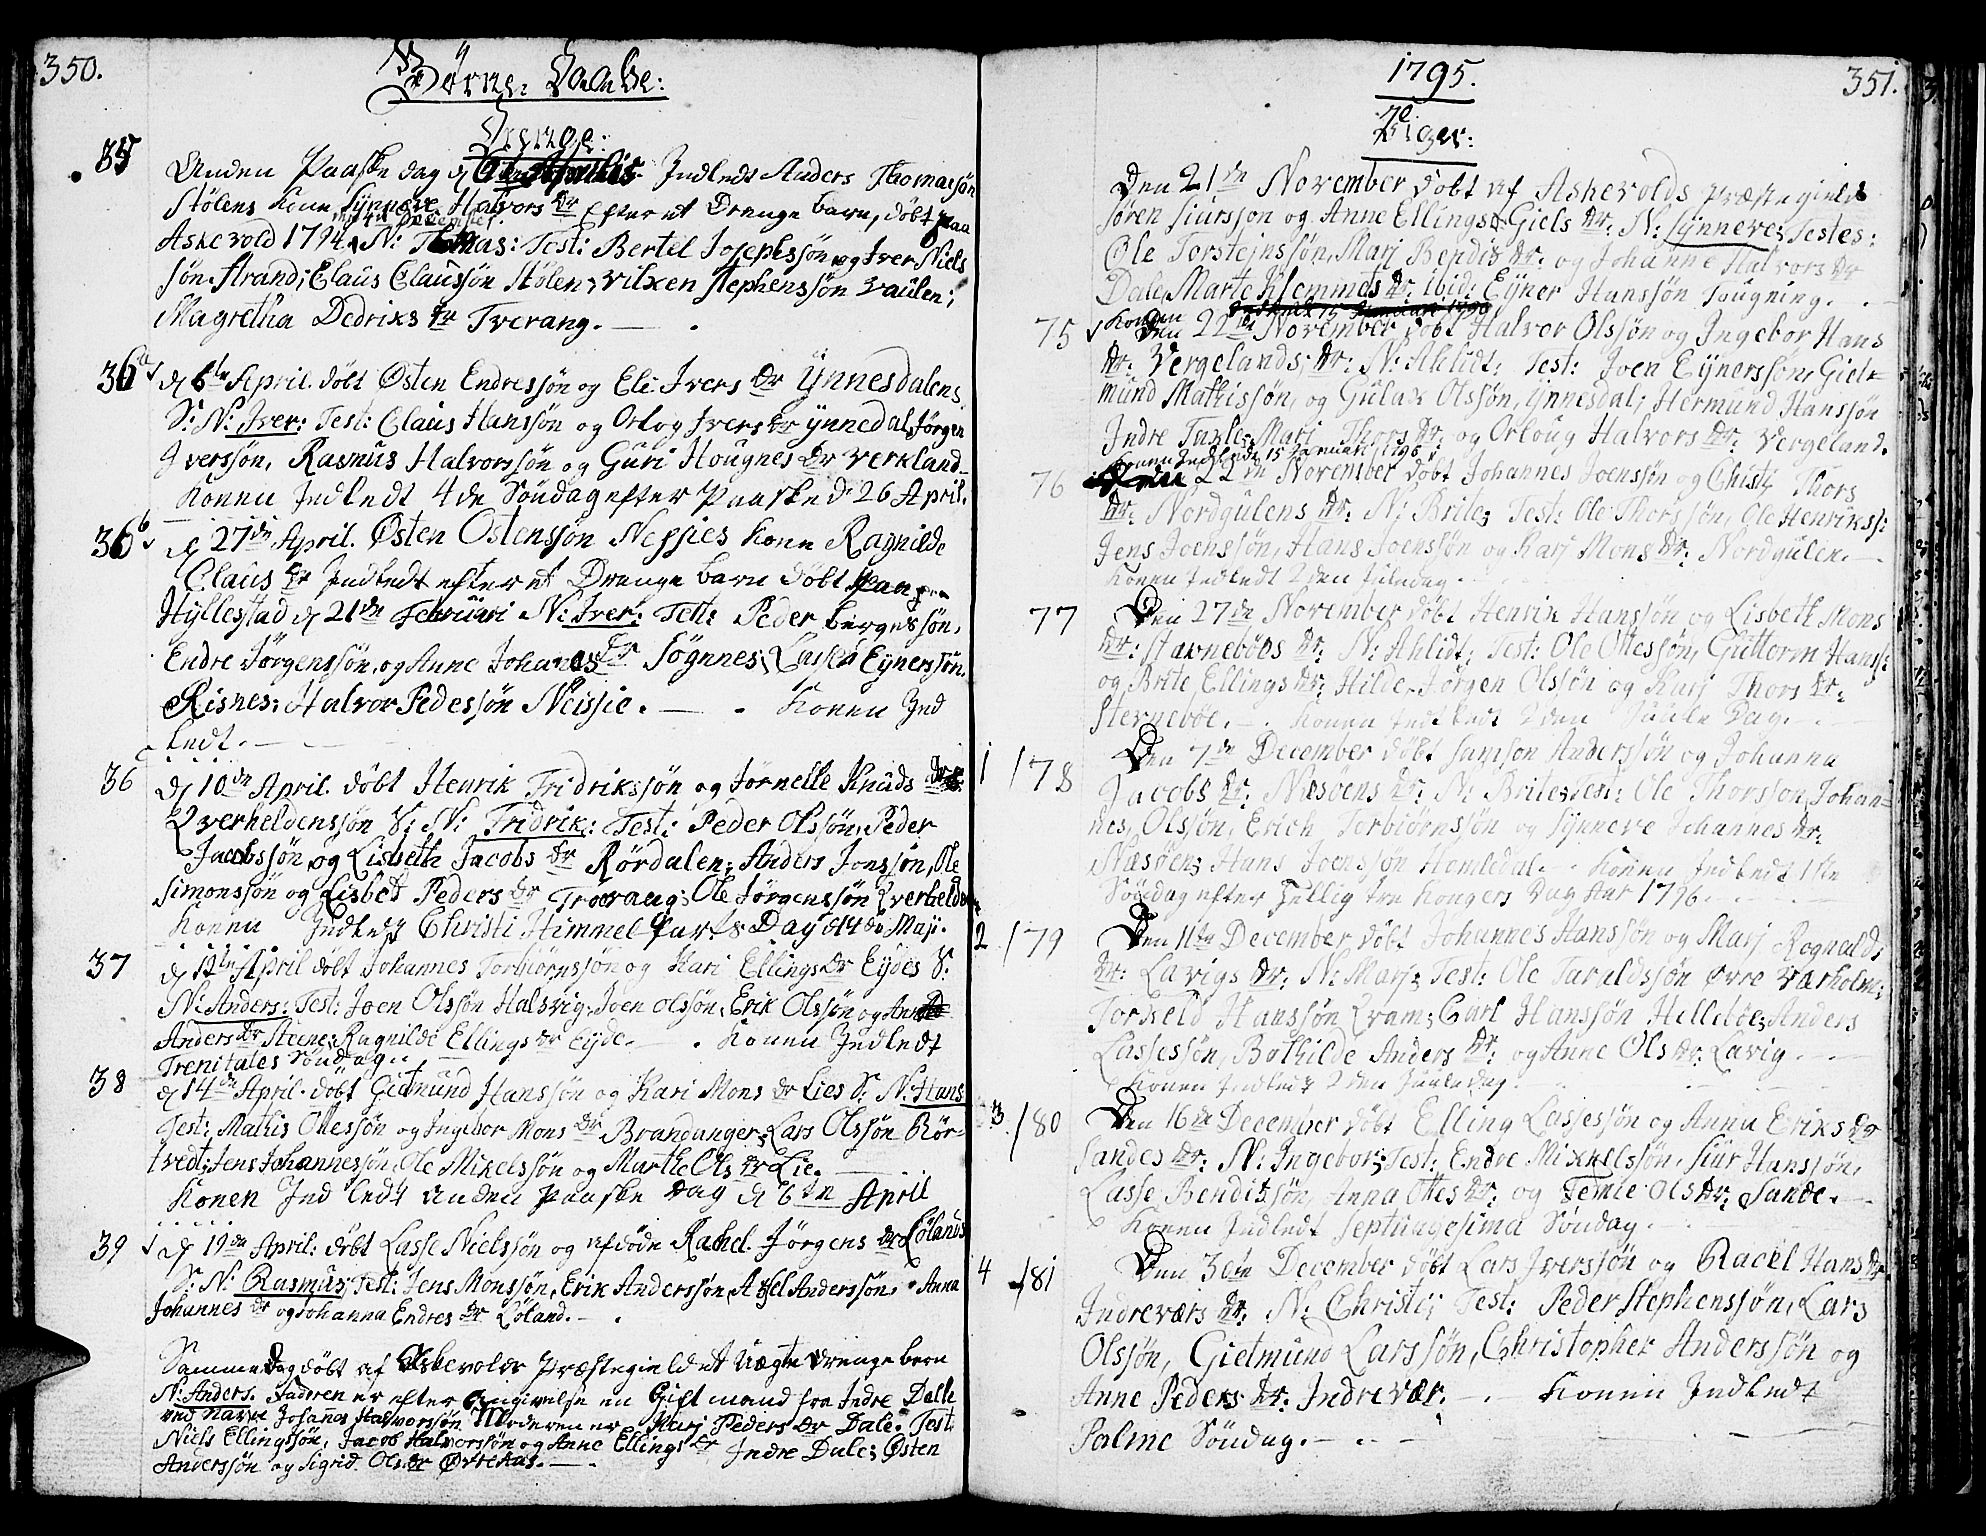 350.
Børne-Daabe:
Drenge:
35
Anden Paaske dag d. Aprilis Indledt Anders Thomæsøn
Stølens Kone Synneve Halvors Dr Efter et Drenge barn, døbt paa
Askevold 1794. N: Thomas: Test: Bertel Josephssøn og Iver Niels
søn Strand; Claus Claussøn Stølen; Vilxen Stephenssøn Vaulen;
Magretha Dedriks Dr Tverang.
36a d 6te April. døbt Østen Endressøn og Eli Ivers Dr Ynnesdalens
S: N: Iver: Test: Claus Hanssøn og Orlog Ivers Dr Ynnedal, Jørgen
Iverssøn, Rasmus Halvorssøn og Guri Hougnes Dr Verkland.
Konen Indledt 4de Søndag efter Paaske d: 26 April.
36b d 27de April. Østen Ostenssøn Nessies Kone Ragnilde
Claus Dr Indledt efter et Drenge barn døbt paa
Hyllestad d 21de Februari N: Iver: Test: Peder bergessøn,
Endre Jørgenssøn, og Anne Johanes Dr Sögnnes; Lasse Eynerssøn
Risnes; Halvor Pedessøn Neissie. Konen Ind
ledt.
36c d 10de April. døbt Henrik Fridrikssøn og Jørnelle Knuds Dr
Qverheldenssøn S: N: Fridrik: Test: Peder Olssøn, Peder
Jacobssøn og Lisbeth Jacobs Dr Rørdalen; Anders Jonssøn, Ole
Simonssøn og Lisbet Peders Dr Trærang; Ole Jørgenssøn Qverhelden
Konen Indledt Christi Himmelfarts Dag d 14de Maji.
37 d 12te April døbt Johannes Torbiørnssøn og Kari Ellings Dr Eydes S:
N: Anders: Test: Joen Olssøn Halsvig, Joen Olssøn, Erik Olssøn og Anne
Anders Dr Steene; Ragnilde Ellings Dr Eyde. Konen Indledt
Trenitates Søndag.
38 d 14de April. døbt Gietmund Hanssøn og Kari Mons Dr Lies S: N: Hans
Test: Mathis Ottessøn og Ingebor Mons Dr Brandanger, Lars Olssøn Rør-
tvedt; Jens Johannessøn, Ole Mikelssøn og Marthe Ols Dr Lie.
Konen Indledt anden Paaske Dag d 6te April
39 d 19de April: døbt Lasse Nielssøn og afdøde Rakel Jørgens Dr Lølands
S: N: Rasmus; Test: Jens Monssøn, Erik Anderssøn, Axel Anderssøn, Anna
Johannes Dr og Johanna Endres Dr Løland.
Samme Dag døbt af Askevolds Præstegield et Uægte Drenge barn
N: Anders. Faderen er efter Angivelse en Gift mand fra Indre Dalle
ved Navne Johannes Halvorssøn. Moderen er Marj Peders Dr Dale. Test:
Niels Ellingssøn, Jacob Halvorssøn og Anne Ellings Dr Indre Dale; Østen
Anderssøn og Sigrid Ols Dr Øvrekas.
1795.
351.
Piger:
Den 21de November døbt af Askevolds præstegield
Søren Siurssøn og Anne Ellings Giels Dr: N: Synneve; Testes:
Ole Torsteinssøn, Marj Bendis Dr: og Johanne Halvors Dr
Dale, Marte Klemmets Dr ibid: Eyner Hanssøn Tougning.
75 Den 22de November døbt Halvor Olssøn og Ingebor Hans
Dr: Vergelands; Dr: N: Ahlidt; Test: Joen Eynerssøn, Giet-
mund Mathissøn, og Gulax Olssøn, Ynnesdal; Hermund Hanssøn
Indre Marj Thors Dr: og Orloug Halvors Dr: Vergeland.
Konen Indledt 15 Januari 1796.
76 22de November døbt Johannes Joenssøn og Christi Thors
Dr: Nordgulens Dr: N: Brite; Test: Ole Thorssøn, Ole Henrikss:
Jens Joenssøn, Hans Joenssøn og Karj Mons Dr: Nordgulen.
Konen Indledt 2den Juledag.
77 Den 27de November døbt Henrik Hanssøn og Lisbeth Mons
Dr: Starnebøes Dr: N: Ahlidt; Test: Ole Ottessøn, Guttorm Hanss:
og Brite Ellings Dr: Hilde, Jørgen Olssøn og Karj Thors Dr:
Sternebøe. Konen Indledt 2den Juule Dag.
1/78 Den 7de December døbt Samson Anderssøn og Johanna
Jacobs Dr: Næsøens Dr: N: Brite; Test: Ole Thorsson, Johan-
nes Olssøn, Erich Torbiørnssøn og Synneve Johannes Dr:
Næsøen; Hans Joenssøn Homledal. Konen Indledt 1ste
Søndag efter Hellig tre Kongers Dag Aar 1796.
2/79 Den 11te December døbt Johannes Hanssøn og Marj Rognalds
Dr: Lavigs Dr: N: Marj; Test: Ole Taraldssøn Øvre Værholm;
Torkeld Hanssøn Qvam; Carl Hanssøn Hellebøe; Anders
Lassessøn, Bothilde Anders Dr: og Anne Ols Dr: Lavig.
Konen Indledt 2den Juuledag.
3/80 Den 16de December døbt Elling Lassessøn og Anna Eriks Dr
Sandes Dr: N: Ingebor; Test: Endre Mikkelssøn, Siur Hanssøn,
Lasse Bendixsøn, Anna Ottes Dr: og Temle Ols Dr: Sande.
Konen Indledt Septuagesima Søndag.
4/81 Den 3ete December døbt Lars Iverssøn og Rachl Hans Dr
Indreværs Dr: N: Christi; Test: Peder Stephenssøn, Lars
Olssøn, Gietmund Larssøn, Christopher Anderssøn og
Anne Peders Dr: Indrevær. Konen Indledt
Palme Søndag.